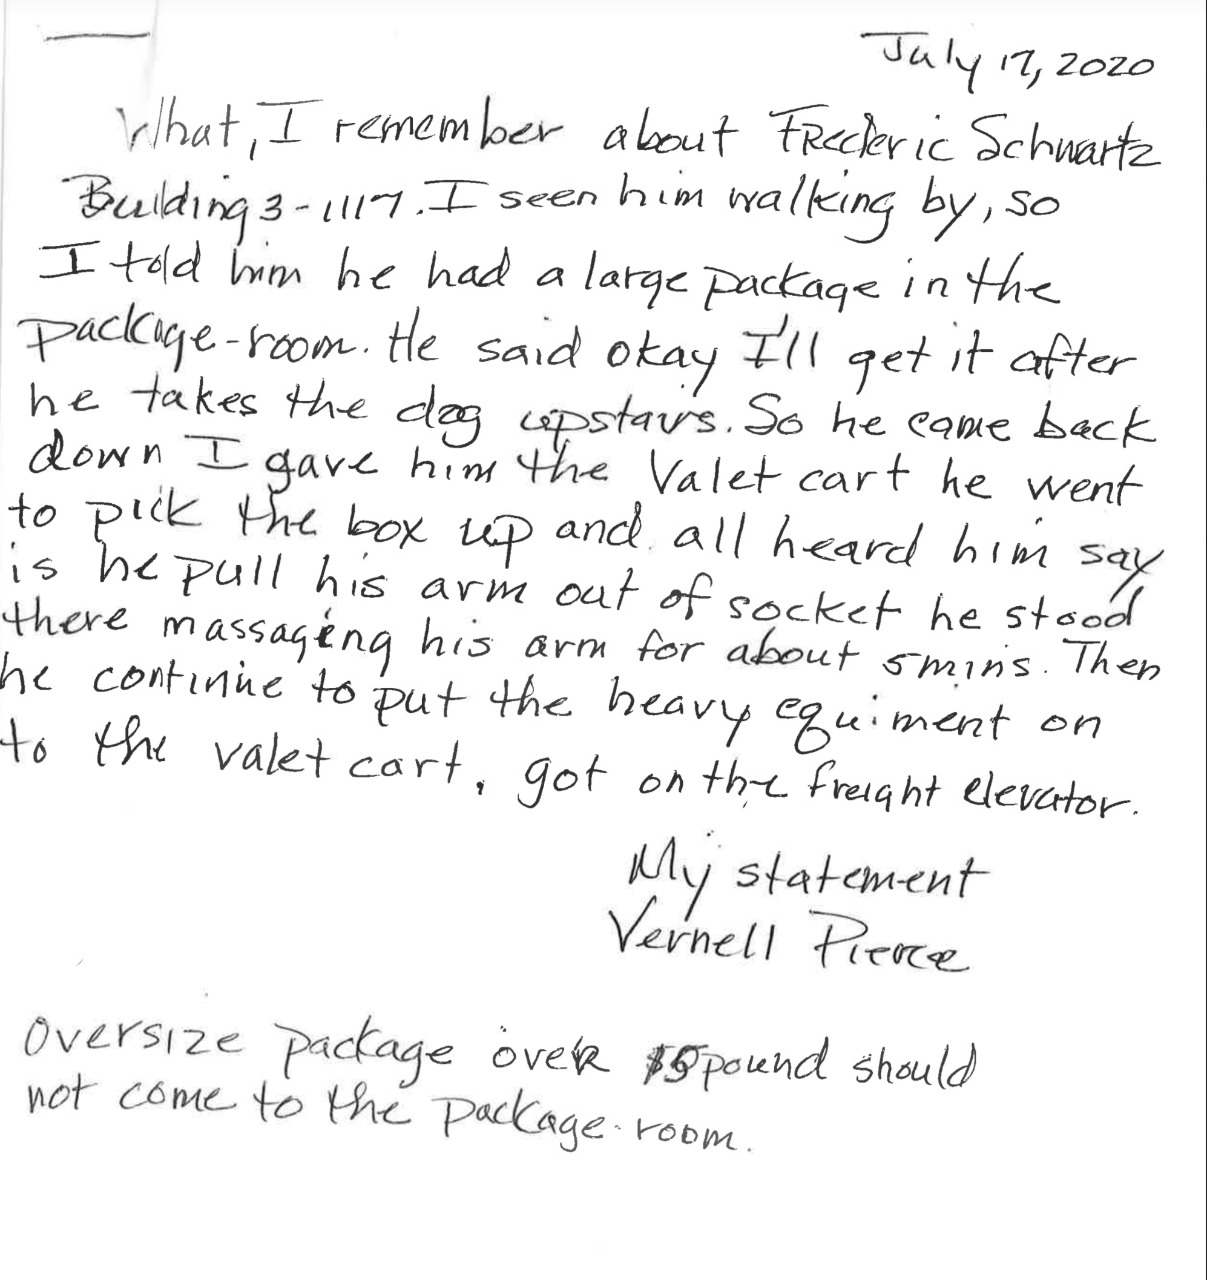 July 17, 2020
What, I remember about Frederic Schwartz
Building 3-1117. I seen him walking by, so
I told him he had a large package in the
package-room. He said okay I'll get it after
he takes the dog upstairs. So he came back
down I gave him the Valet cart he went
to pick the box up and all heard him say
is he pull his arm out of socket he stood
there massaging his arm for about 5 mins. Then
he continue to put the heavy equiment on
to the valet cart, got on the freight elevator.
My statement
Vernell Pierce
Oversize package over pound should
not come to the package-room.